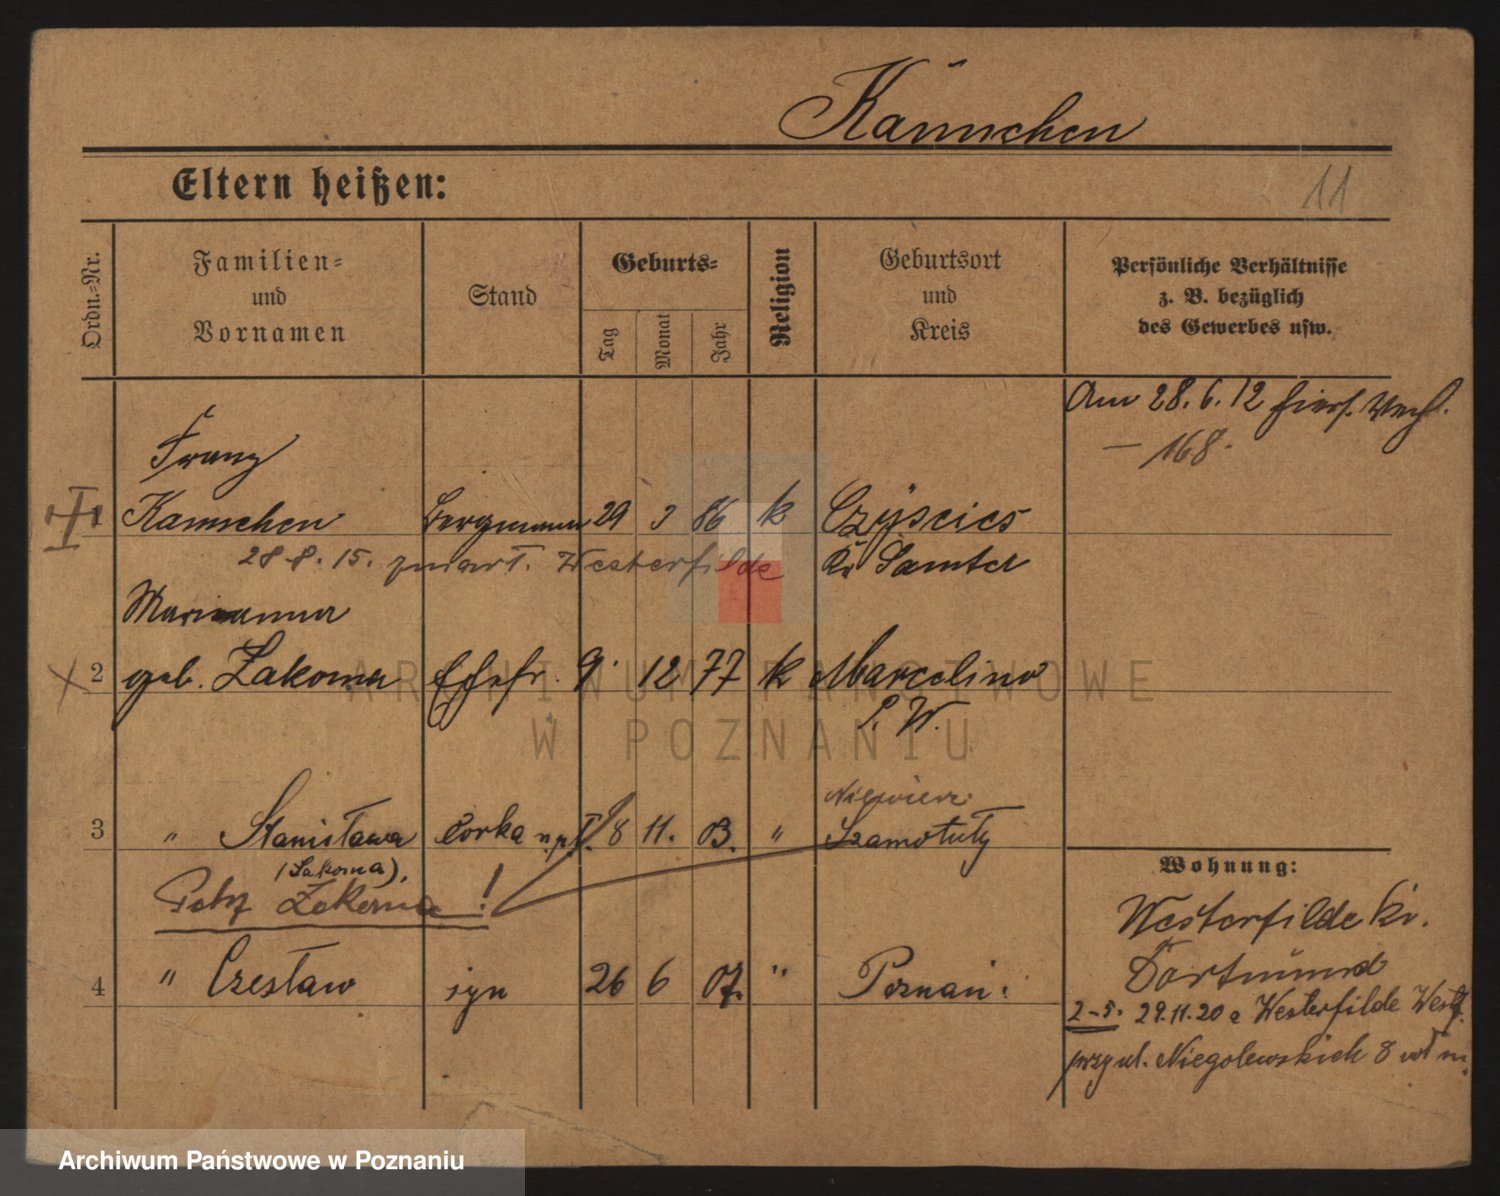 Kännchen
Eltern heißen:
11
Ordn.-Nr.
Familien- und Vornamen
Stand
Geburts-
Tag
Monat
Jahr
Religion
Geburtsort und Kreis
Persönliche Verhältnisse
z. B. bezüglich
des Gewerbes usw.
Am 28. 6. 12
— 168.
Franz
1 Kannchen Bergmann 29 3 86 k
28 8. 15. zmarł. Westerfilde Kr Samter
Marianna
2 geb. Zakoma Ehefr. 9. 12 77 k Marcelino
S. W.
3 " Stanisława Corka 8 11. 03. " Szamotuły
(Zakoma),
Zakoma !
4 " Czesław syn 26 6 07. " Poznań.
Wohnung:
Westerfilde Kr.
Dortmund
2-5. 29.11.20 z Westerfilde Westf.
przy ul. Niegolewskich 8
ARCHIWUM PAŃSTWOWE
W POZNANIU
Archiwum Państwowe w Poznaniu